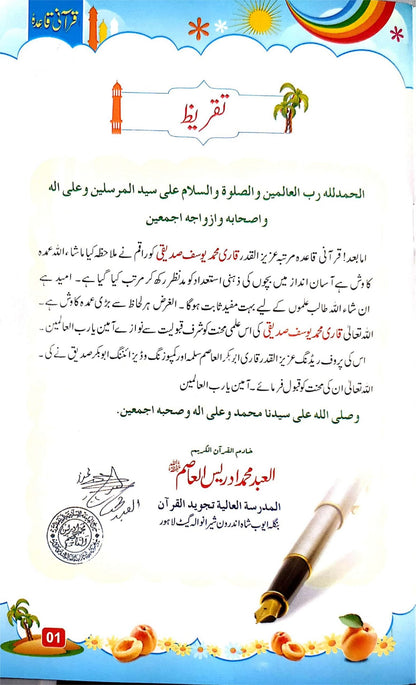 قرآنی قاعدہ
تقریظ
الحمدللہ رب العالمین والصلوۃ والسلام علی سید المرسلین وعلی الہ
واصحابہ وازواجہ اجمعین
اما بعد! قرآنی قاعدہ مرتبہ عزیز القدر قاری محمد یوسف صدیقی کو راقم نے ملاحظہ کیا ماشاءاللہ عمدہ
کاوش ہے آسان انداز میں بچوں کی ذہنی استعداد کو مدنظر رکھ کر مرتب کیا گیا ہے۔ امید ہے
ان شاء اللہ طالب علموں کے لیے بہت مفید ثابت ہوگا۔ الغرض ہر لحاظ سے بڑی عمدہ کاوش ہے۔
اللہ تعالیٰ قاری محمد یوسف صدیقی کی اس علمی محنت کو شرف قبولیت سے نوازے آمین یا رب العالمین۔
اس کی پروف ریڈنگ عزیز القدر قاری ابوبکر العاصم سلمہ اور کمپوزنگ و ڈیزائننگ ابوبکر صدیق نے کی۔
اللہ تعالیٰ ان کی محنت کو قبول فرمائے۔ آمین یا رب العالمین
وصلی اللہ علی سیدنا محمد وعلی الہ وصحبہ اجمعین۔
خادم القرآن الکریم
العبد محمد ادریس العاصم
المدرسۃ العالیۃ تجوید القرآن
بنگلہ ایوب شاہ اندرون شیرانوالہ گیٹ لاہور
01